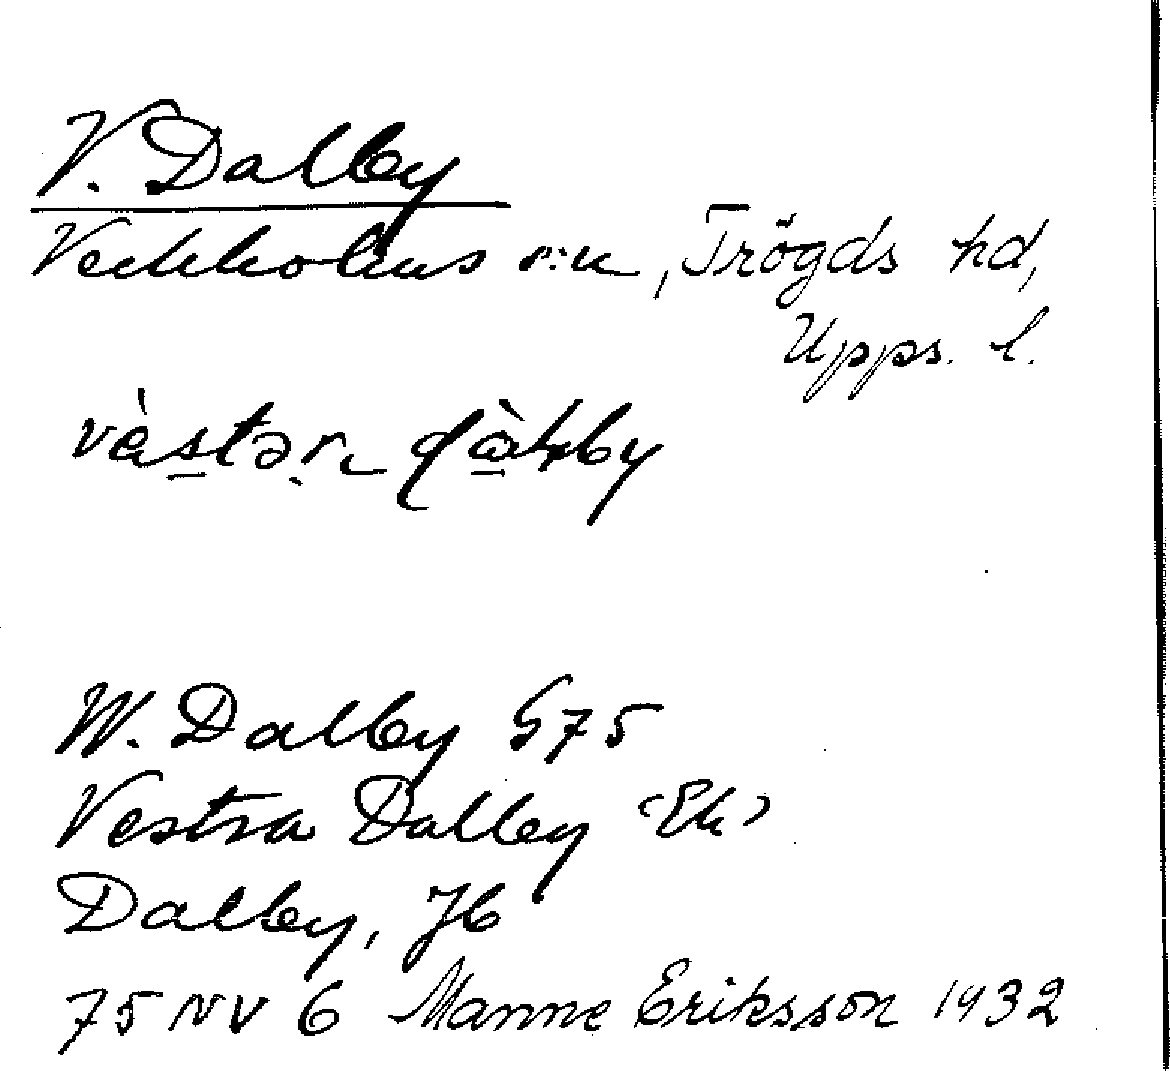 V. Dalby
Veckholms sn, Trögds hd,
Upps. l.
vèstən dàlby
W. Dalby G75
Vestra Dalby (Ek)
Dalby, Jb
75 NV 6 Manne Eriksson 1932